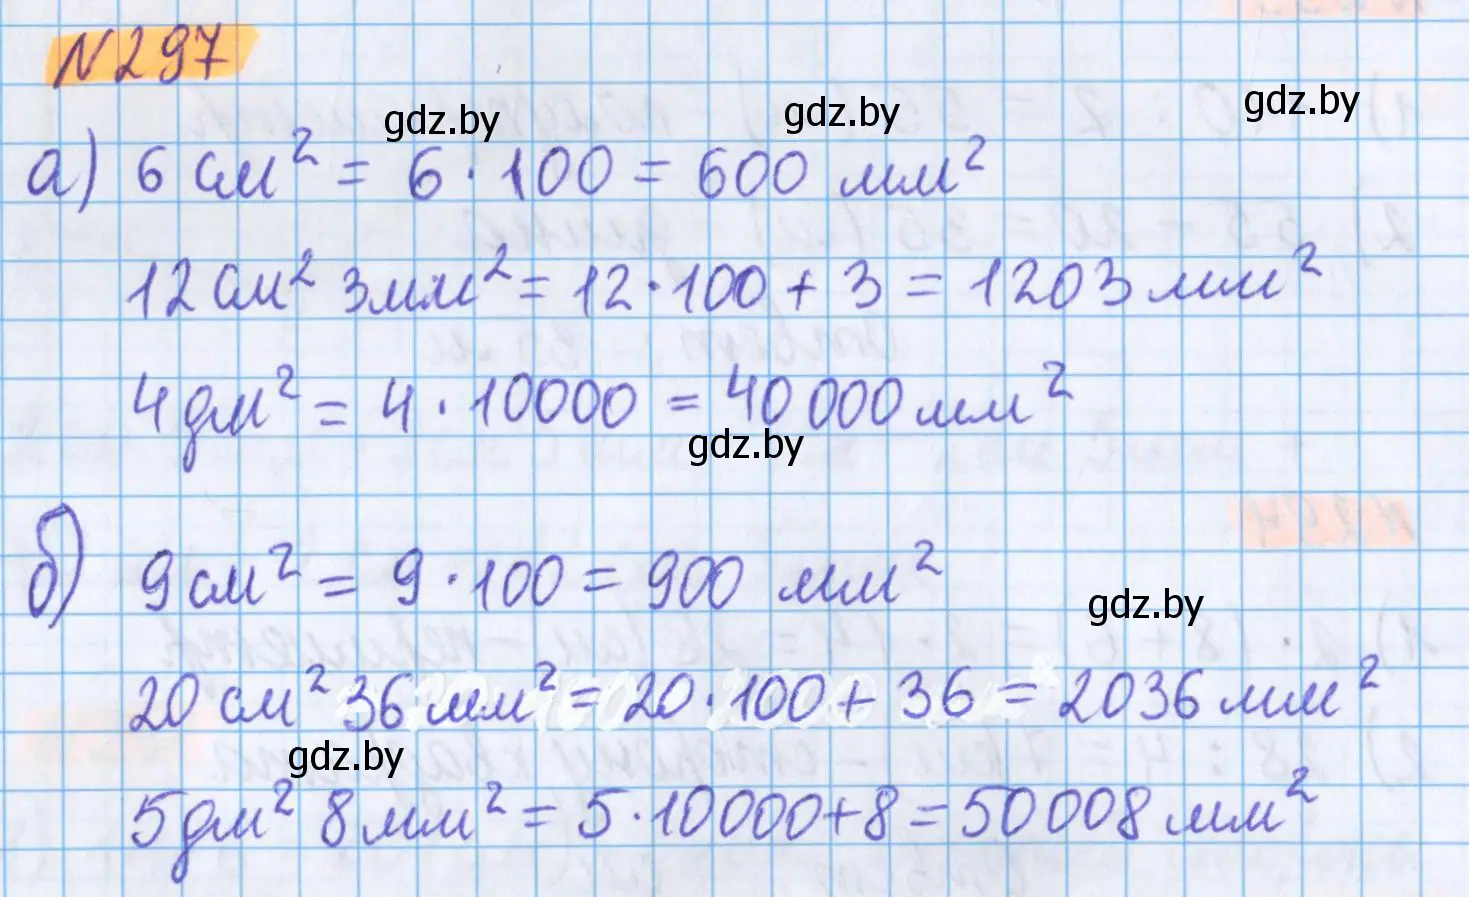 N297
gdz.by gdz.by gdz.by
а) 6 см² = 6 · 100 = 600 мм²
12 см² 3 мм² = 12 · 100 + 3 = 1203 мм²
4 дм² = 4 · 10000 = 40 000 мм²
gdz.by
б) 9 см² = 9 · 100 = 900 мм²
gdz.by
20 см² 36 мм² = 20 · 100 + 36 = 2036 мм²
gdz.by
5 дм² 8 мм² = 5 · 10000 + 8 = 50 008 мм²